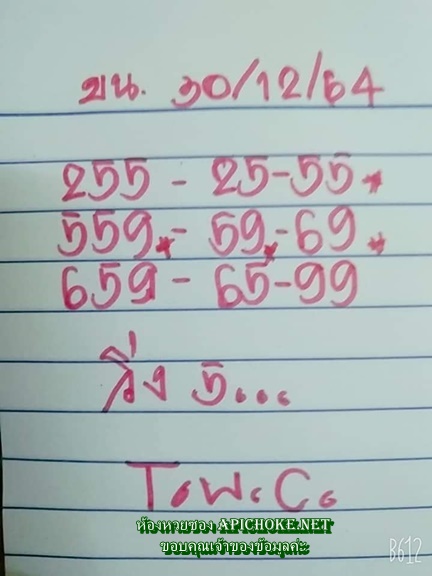 ขน. 30/12/64
255 - 25-55*
559*- 59*-69*
659 - 65-99
วิ่ง 5...
T.พ.C.
ห้องหวยซอง APICHOKE.NET
ขอบคุณเจ้าของข้อมูลค่ะ
B612